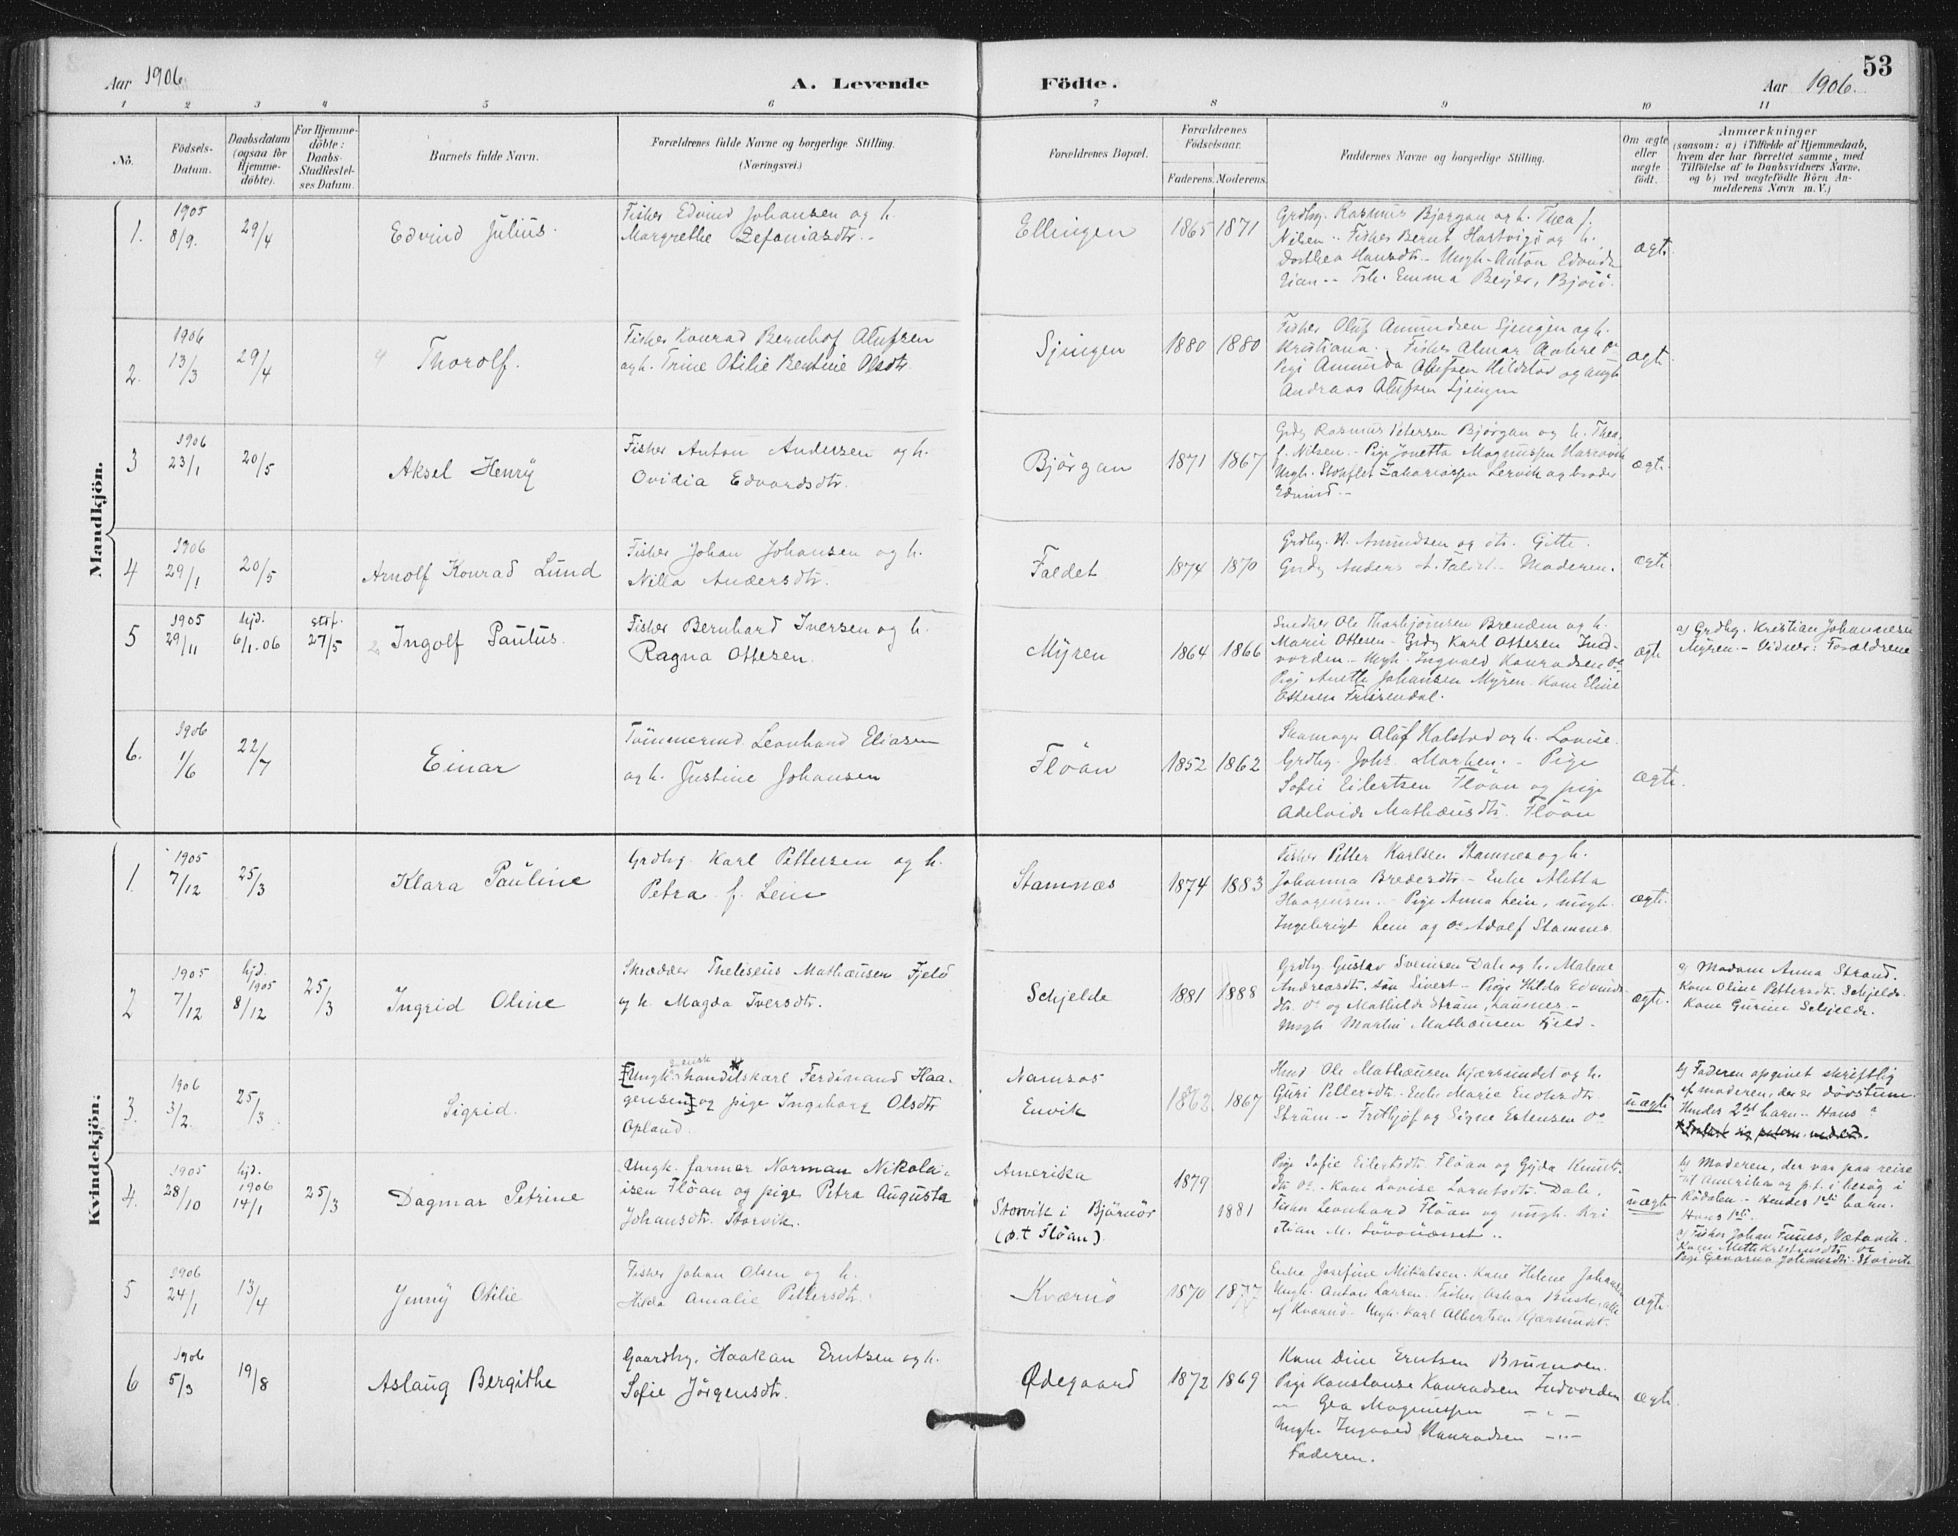 53
Aar 1906.
A. Levende Födte.
Aar 1906.
1 2 3 4 5 6 7 8 9 10 11
No.
Födsels-Datum.
Daabsdatum (ogsaa for Hjemmedöbte).
For Hjemmedöbte: Daabs-Stadfæstelses Datum.
Barnets fulde Navn.
Forældrenes fulde Navne og borgerlige Stilling. (Næringsvei.)
Forældrenes Bopæl.
Forældrenes Födselsaar.
Faderens. Moderens.
Faddernes Navne og borgerlige Stilling.
Om ægte eller uægte födt.
Anmærkninger
(saasom: a) i Tilfælde af Hjemmedaab, hvem der har forrettet samme, med Tilföielse af to Daabsvidners Navne, og b) ved uægtefödte Börn Anmelderens Navn m. V.)
Mandkjön.
1. 1905 8/9. 29/4 Edvind Julius.
Fisker Edvind Johansen og h.
Margrethe Zefaniasdtr.
Ellingen 1865 1871
Grdbg. Rasmus Bjørgan og h. Thea f.
Nilsen - Fisker Bernt Hartvigs og h.
Dorthea Hansdtr. - Ungk. Anton
Emma
ægt.
2. 1906 13/3 29/4 Thorolf.
Fisker Konrad Bernhof Olufsen
og h. Trine Otilie Bentine Olsdtr.
Sjingen 1880 1880
Fisker Oluf Amundsen Sjingen og h.
Kristiana. - Fisker Almar
Pige Amunda Olufsen Hildstad og ungk.
Andreas Olufsen Sjingen
ægt.
3 1906 23/1 20/5 Aksel Henry
Fisker Anton Andersen og h.
Ovidia Edvardsdtr.
Bjørgan 1871 1867
Grdbg Rasmus Petersen Bjørgan og h. Thea
f. Nilsen. - Pige Jonetta Magnussen
Ungk. Zakariassen Lervik og broder
Edvind. -
ægt.
4 1906 29/1 20/5 Arnolf Konrad Lund
Fisker Johan Johansen og h.
Nilla Andersdtr.
Faldet 1874 1870
Grdbg. N. Amundsen og dtr. Gitte.
Grdbg Anders A. Faldet - Moderen.
ægt.
5 1905 29/11 hjd. 6/1.06 stdf. 27/5 Ingolf Paulus.
Fisker Bernhard Iversen og h.
Ragna Ottesen.
Myren 1864 1866
Snedker Ole Thorbjørnsen Brendem og h.
Marie Ottesen - Grdbg Karl Ottesen Ind-
vorden - Ungk. Ingvald Konradsen
Pige Anette Johansen Myren. Kone Eline
Ottesen
ægt
a) Grdbg. Kristian Johannesen
Myren. - Vidner: Forældrene
6. 1906 1/6 22/7 Einar
Tömmermd. Leonhard Eliasen
og h. Justine Johansen
Flöan 1852 1862
Skomager Oluf Halstad og h. Lovise.
Grdbg. Johs. - Pige
Sofie Eilertsen Flöan og pige
Adelaide Mathæusdtr. Flöan
ægt.
Kvindekjön.
1. 1905 7/12 25/3 Klara Pauline
Grdbg. Karl Pettersen og h.
Petra f. Lein
Stamnæs 1874 1883
Fisker Petter Karlsen Stamnes og h.
Johanna Bredesdtr. - Enke Aletta
Haagensen. - Pige Anna Lein, ungk.
Ingebrigt Lein og Adolf Stamnes.
ægt.
2 1905 7/12 hjd. 1905 8/12 25/3 Ingrid Oline
Skrædder Theliseus Mathæusen Fjeld
og h. Magda Iversdtr.
Schjelde 1881 1888
Grdbg. Gustav Svensen Dale og h. Malene
Andreasdtr. søn Sivert - Pige Hilda Edvards-
dtr. og Mathilde Ström, -
Ungk. Martin Mathæusen Fjeld.
ægt.
a) Madam Anna Strand.
Kone Oline Pettersdtr. Schjelde.
Kone Gurine Schjelde.
3. 1906 3/2. 25/3 Sigrid.
[Ungk. handelskarl Ferdinand Haa-
gensen] og pige Ingeborg Olsdtr.
Opland.
Namsos
Envik
1862 1867
Ole Mathæusen Kjærsundet og h.
Guri Pettersdtr. - Enke Marie
Ström. - Frithjof og Signe Estensen
uægte
b) Faderen opgivet skriftlig
af moderen, der er døvstum.
Hendes 2det barn. - Hans
4. 1905 28/10 hjd. 1906 14/1 25/3 Dagmar Petrine
Ungk. farmer Norman Nikolai-
isen Flöan og pige Petra Augusta
Johansdtr. Storvik.
Amerika
Storvik i Björnör
(p.t Flöan)
1879 1881
Pige Sofie Eilertsdtr. Flöan og Gyda
Kone Lovise Lorntsdtr. Dale,
Fisker Leonhard Flöan og ungk. Kri
stian M.
uægte
b) Moderen, der var paa reise
til Amerika og p.t. i besøg i
Rödalen - Hendes 1ste barn.
Hans 1ste.
a) Fisker Johan
5 1906 24/1 13/4 Jenny Otilie
Fisker Johan Olsen og h.
Hilda Amalie Pettersdtr.
Kværnö 1870 1877
Enke Josefine Mikalsen. Kone Helene Johansen
Ungk. Anton Larsen. Fisker Oskar Buste, alle
af Kværnö - Ungk. Karl Albertsen Kjærsundet.
ægt.
6 1906 5/3 19/8 Aslaug Bergithe
Gaardbg. Haakan Erntsen og h.
Sofie Jörgensdtr.
Ødegaard 1872 1869
Kone Dine Erntsen Brumoen.
Pige Konstanse Konradsen Indvorden
- Gea Magnussen
Ungk. Ingvald Konradsen
Faderen.
ægt.